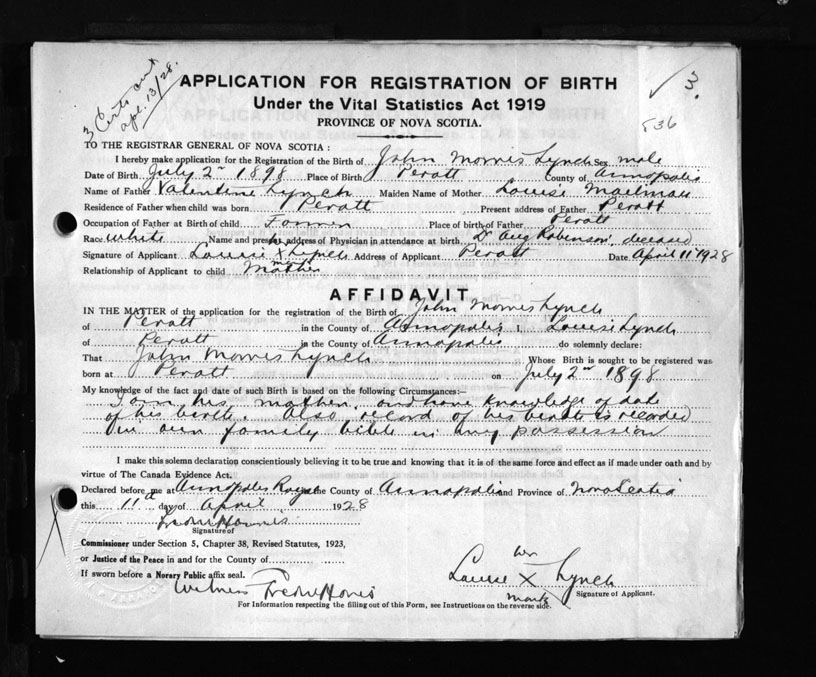 3 Certs out
apl. 13/28.
✓ 3.
536
APPLICATION FOR REGISTRATION OF BIRTH
Under the Vital Statistics Act 1919
PROVINCE OF NOVA SCOTIA.
TO THE REGISTRAR GENERAL OF NOVA SCOTIA :
I hereby make application for the Registration of the Birth of John Morris Lynch Sex male
Date of Birth July 2nd 1898 Place of Birth Peratt County of Annapolis
Name of Father Valentine Lynch Maiden Name of Mother Louise Mailman
Residence of Father when child was born Peratt Present address of Father Peratt
Occupation of Father at Birth of child Farmer Place of birth of Father Peratt
Race white Name and present address of Physician in attendance at birth Dr Aug Robinson, deceased
Signature of Applicant Louise X Lynch Address of Applicant Peratt Date April 11 1928
her
mark
Relationship of Applicant to child Mother
AFFIDAVIT
IN THE MATTER of the application for the registration of the Birth of John Morris Lynch
of Peratt in the County of Annapolis I, Louise Lynch
of Peratt in the County of Annapolis do solemnly declare:
That John Morris Lynch Whose Birth is sought to be registered was
born at Peratt on July 2nd 1898
My knowledge of the fact and date of such Birth is based on the following Circumstances:—
I am his mother and have knowledge of date
of his birth. Also record of his birth is recorded
in our family bible in my possession
I make this solemn declaration conscientiously believing it to be true and knowing that it is of the same force and effect as if made under oath and by
virtue of The Canada Evidence Act.
Declared before me at Annapolis Royal the County of Annapolis and Province of Nova Scotia
this 11th day of April 1928
Signature of
Commissioner under Section 5, Chapter 38, Revised Statutes, 1923,
or Justice of the Peace in and for the County of
If sworn before a Notary Public affix seal.
Witness
her
Louise X Lynch
mark
Signature of Applicant.
For Information respecting the filling out of this Form, see Instructions on the reverse side.